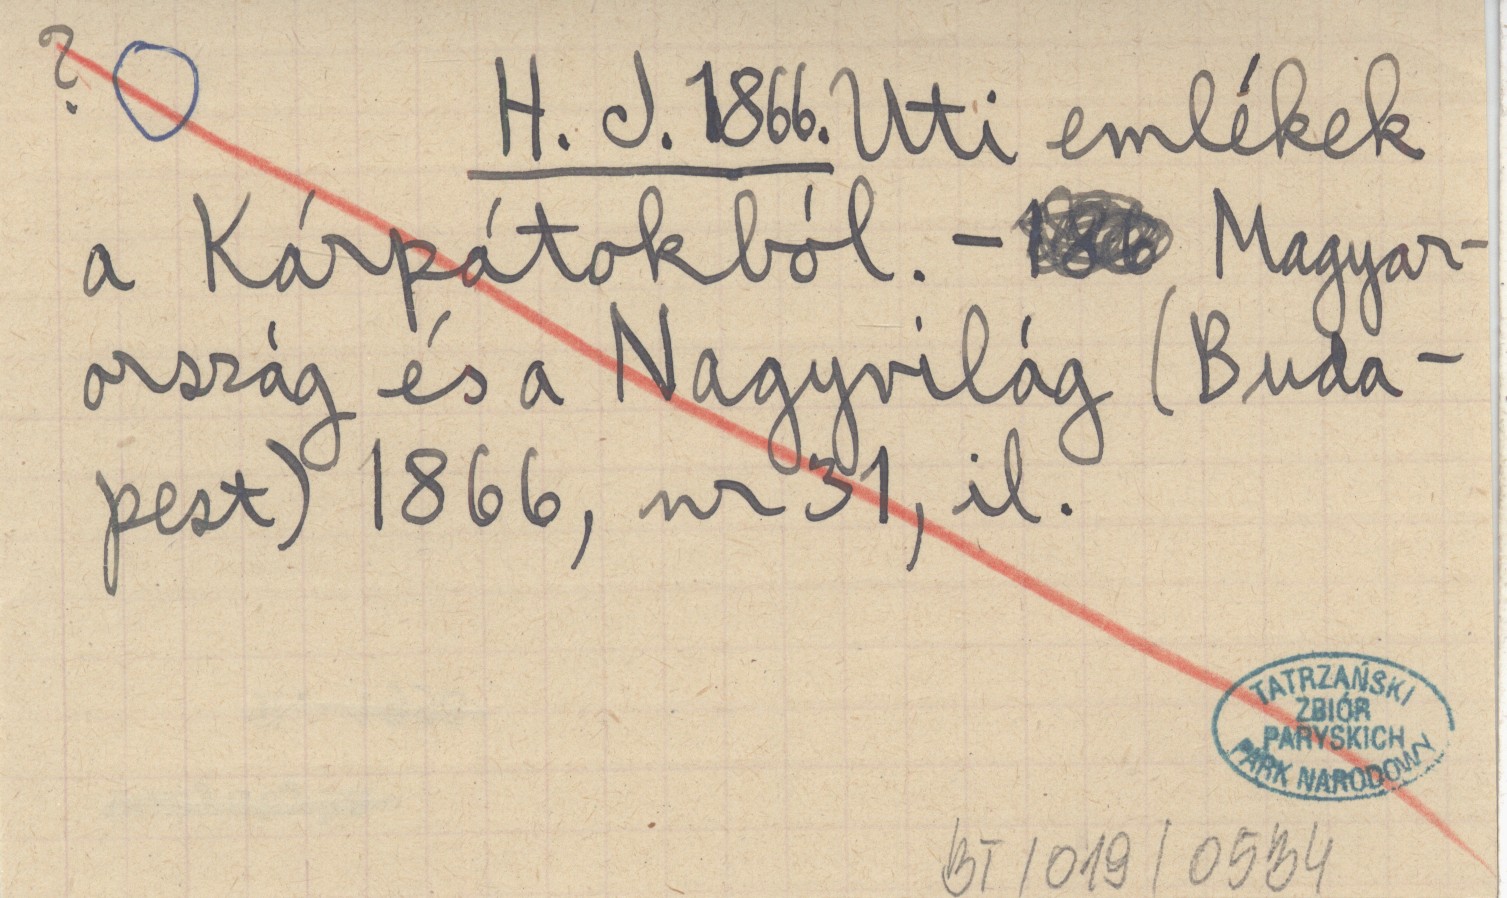 ?
H. J. 1866. Uti emlékek
a Kárpátokból. - Magyar-
ország és a Nagyvilág (Buda-
pest) 1866, nr 31, il.
TATRZAŃSKI
ZBIÓR
PARYSKICH
PARK NARODOWY
BT/019/0534